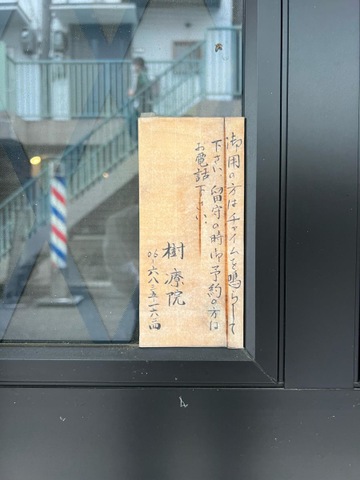 御用の方はチャイムを鳴らして
下さい 留守の時御予約の方は
お電話下さい.
樹療院